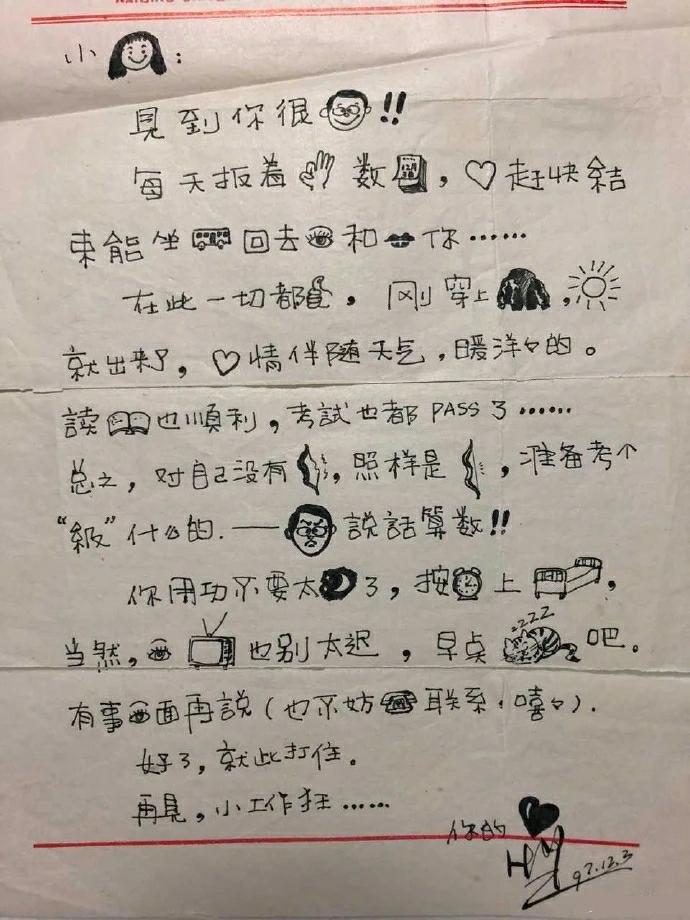 小 :
見到你很 !!
每天扳着 数 , ♡赶快結
束能坐 回去 和 你……
在此一切都 , 刚穿上 ,
就出来了, ♡情伴随天气, 暖洋々的。
読 也順利, 考試也都 PASS 了……
总之, 对自己没有 , 照样是 , 准备考个
“級”什么的. —— 説話算数!!
你用功不要太 了, 按 上 ,
当然, 也别太迟 , 早点 zzzz 吧。
有事 面再説 (也不妨 联系, 嘻々).
好了, 就此打住。
再見, 小工作狂……
你的
97.12.3